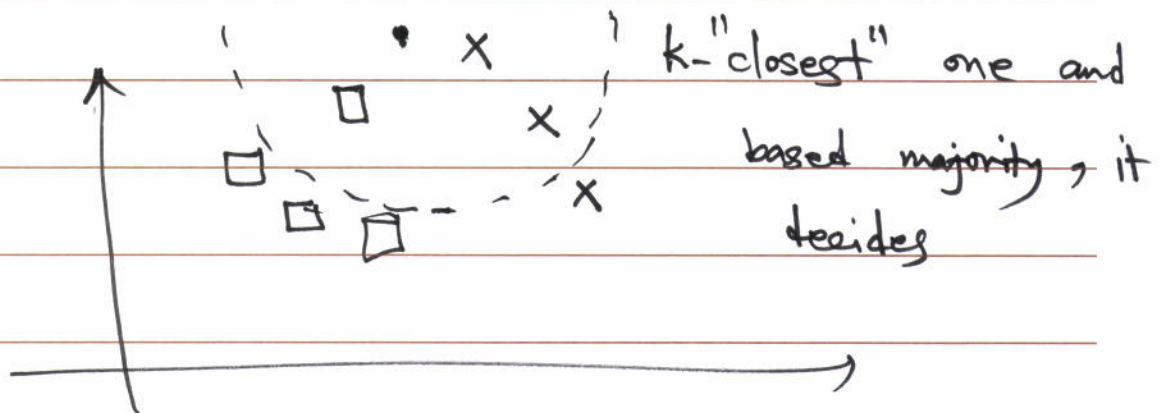 k-"closest" one and
based majority, it
decides